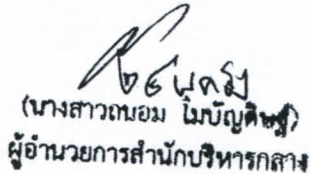 (นางสาวถนอม ไมบัญดิษฐ์)
ผู้อำนวยการสำนักบริหารกลาง